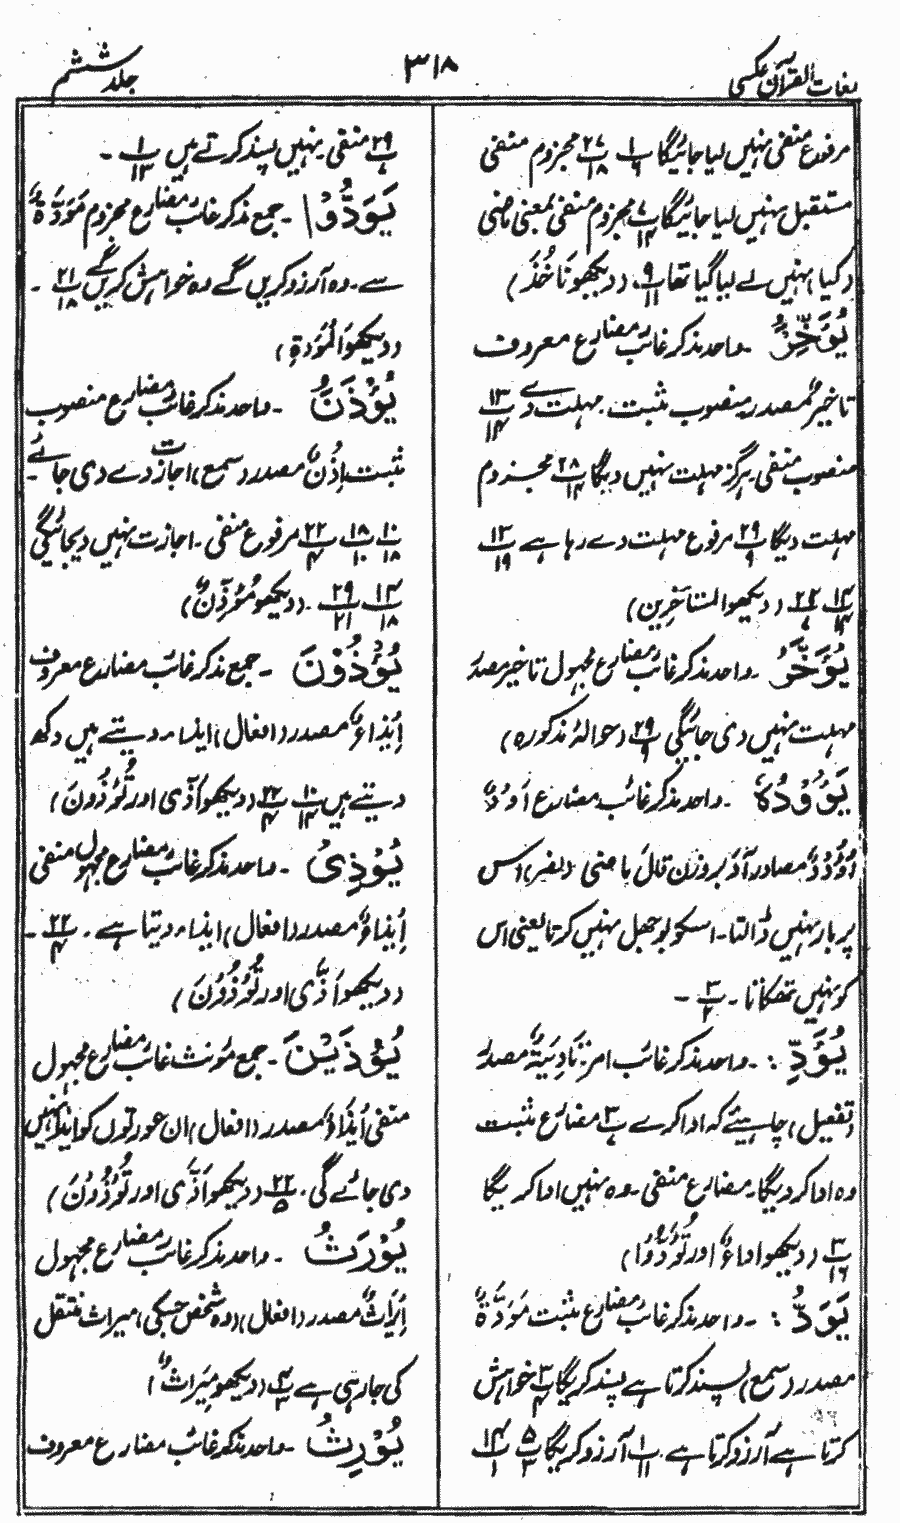 لغات القرآن عکسی
۳۱۸
جلد ششم
مرفوع منفی نہیں لیا جائیگا ۱/۹ پ ۲۷/۱۸ مجزوم منفی
مستقبل نہیں لیا جائیگا پ ۷/۱۴ مجزوم منفی بمعنی ماضی
(کیا نہیں لے لیا گیا تھا پ ۹/۱۱۔ (دیکھو نَاخُذَ)
یُؤَخِّرُ ۔ واحد مذکر غائب مضارع معروف
تاخیرٌ مصدر منصوب مثبت ۔ مہلت دے ۱۳/۱۴
منصوب منفی ۔ ہرگز مہلت نہیں دیگا پ ۲۸/۱۴ مجزوم
مہلت دیگا پ ۲۹/۹ مرفوع مہلت دے رہا ہے ۱۳/۱۹
۱۴/۱۴ ۲۲/ (دیکھو المستأخرین)
یُؤَخَّرُ ۔ واحد مذکر غائب مضارع مجہول تاخیر مصدر
مہلت نہیں دی جائیگی پ ۲۹/۹ (حوالۂ مذکورہ)
یَؤُوْدُہٗ ۔ واحد مذکر غائب مضارع اَوْدٌ
اُوُوْدٌ مصادر آدَ بروزن قالَ ماضی (نصر) اس
پر بار نہیں ڈالتا ۔ اسکو بوجھل نہیں کرتا یعنی اس
کو نہیں تھکاتا ۔ ۳/۲ ۔
یُؤَدِّ :۔ واحد مذکر غائب امر تَادِیَۃٌ مصدر
(تفعیل) چاہیئے کہ ادا کرے پ ۳/ مضارع مثبت
وہ ادا کر دیگا ۔ مضارع منفی ۔ وہ نہیں ادا کریگا
۳/۱۶ (دیکھو اداءٌ اور تُؤَدُّوْا)
یَوَدُّ :۔ واحد مذکر غائب مضارع مثبت مَوَدَّۃٌ
مصدر (سمع) پسند کرتا ہے پسند کریگا پ ۳/۴ خواہش
کرتا ہے آرزو کرتا ہے ۔ پ ۱/۱۱ آرزو کریگا پ ۵/۳ ۱۴/۱
پ ۲۹/ منفی ۔ نہیں پسند کرتے ہیں ۱/۱۳ ۔
یَوَدُّوْا ۔ جمع مذکر غائب مضارع مجزوم مَوَدَّۃٌ
سے ۔ وہ آرزو کریں گے وہ خواہش کریں گے ۲۱/۱۸ ۔
(دیکھو اَلْمَوَدَّۃِ)
یُؤْذَنَ ۔ واحد مذکر غائب مضارع منصوب
مثبت اِذْنٌ مصدر (سمع) اجازت دے دی جائے ۔
۱۰/۱۸ ۱۸/۱۰ ۲۲/۴ مرفوع منفی ۔ اجازت نہیں دیجائیگی
۱۴/۱۸ ۲۹/۲۱ ۔ (دیکھو مُؤَذِّنٌ)
یُؤْذُوْنَ ۔ جمع مذکر غائب مضارع معروف
اِیْذَاءٌ مصدر (افعال) ایذاء دیتے ہیں دکھ
دیتے ہیں ۱۰/۱۴ ۲۲/۴ (دیکھو آذٰی اور تُؤْذُوْنَ)
یُؤْذِیْ ۔ واحد مذکر غائب مضارع مجہول منفی
اِیْذَاءٌ مصدر (افعال) ایذاء دیتا ہے ۔ ۲۲/۴ ۔
(دیکھو اَذًی اور تُؤْذُوْنَ)
یُؤْذَیْنَ ۔ جمع مؤنث غائب مضارع مجہول
منفی اِیْذَاءٌ مصدر (افعال) ان عورتوں کو ایذا نہیں
دی جائے گی ۔ ۲۲/۵ (دیکھو اَذًی اور تُؤْذُوْنَ)
یُوْرَثُ ۔ واحد مذکر غائب مضارع مجہول
اِیْرَاثٌ مصدر (افعال) (وہ شخص جسکی) میراث منتقل
کی جا رہی ہے پ ۴/ (دیکھو مِیْرَاثٌ)
یُوْرِثُ ۔ واحد مذکر غائب مضارع معروف